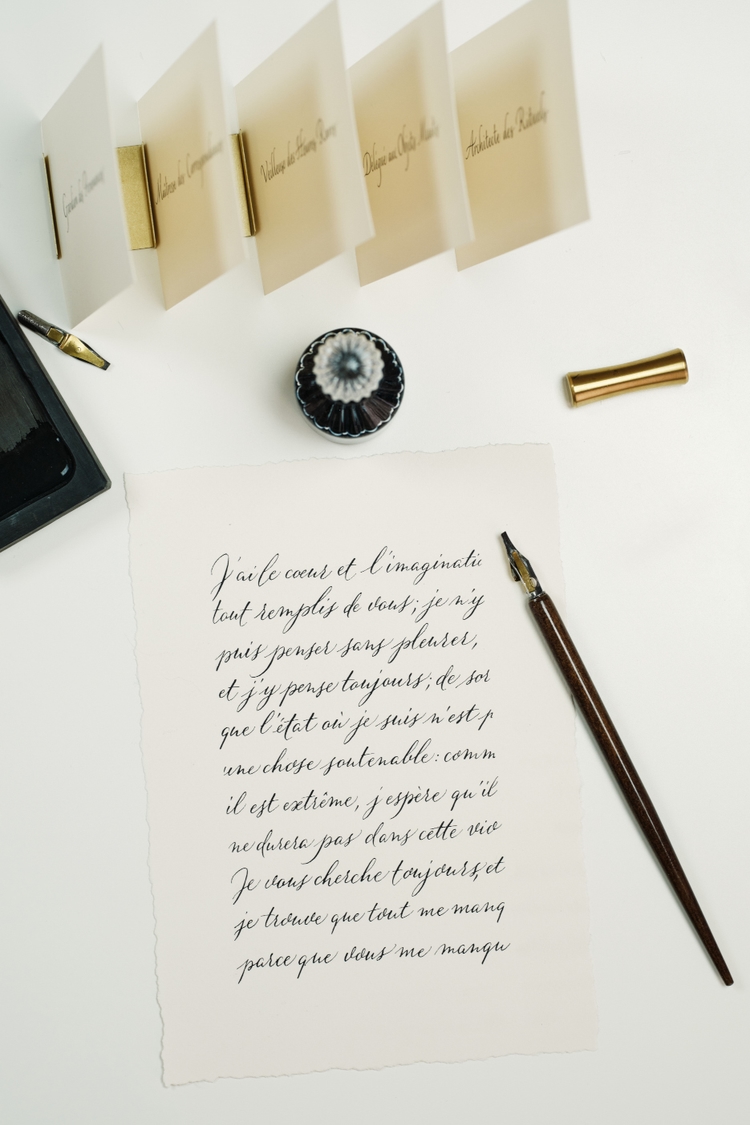 Gardien de
Maîtresse des Correspondances
Veilleuse des Heures Rares
Délégué aux Objets Muets
Architecte des Rituels
J'ai le cœur et l'imaginati
tout remplis de vous; je n'y
puis penser sans pleurer,
et j'y pense toujours; de sor
que l'état où je suis n'est p
une chose soutenable: comm
il est extrême, j'espère qu'il
ne durera pas dans cette vio
Je vous cherche toujours, et
je trouve que tout me manq
parce que vous me manqu